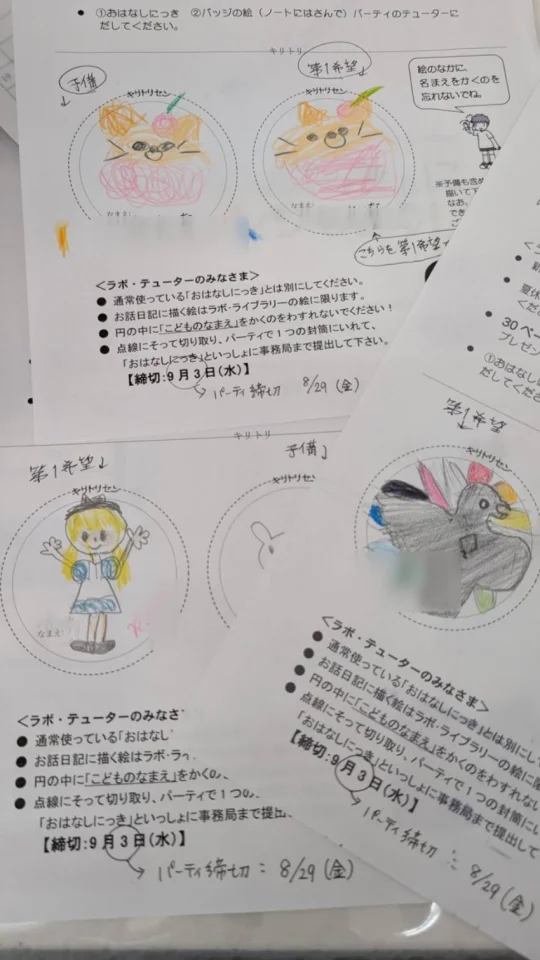 ●　①おはなしにっき　②バッジの絵（ノートにはさんで）パーティのチューターに
だしてください。
キリトリ
予備
↓
キリトリセン
第1希望↓
キリトリセン
絵のなかに、
名まえをかくのを
忘れないでね。
なまえ:
なまえ:
※予備も含め
描いて下
なお、
でき
こちらを第1希望
<ラボ・チューターのみなさま>
● 通常使っている「おはなしにっき」とは別にしてください。
● お話日記に描く絵はラボ・ライブラリーの絵に限ります。
● 円の中に「こどものなまえ」をかくのをわすれないでください！
● 点線にそって切り取り、パーティで１つの封筒にいれて、
「おはなしにっき」といっしょに事務局まで提出して下さい。
【締切:9月3日(水)】
→パーティ締切　8/29(金)
夏休
くださ
● 30ペー
プレゼン
● ①おはなしに
だしてくださ
キリトリ
第1希望↓
キリトリセン
予備↓
キリトリセン
なまえ:
<ラボ・チューターのみなさ
● 通常使っている「おはなし
● お話日記に描く絵はラボ・ラ
● 円の中に「こどものなまえ」をかく
● 点線にそって切り取り、パーティで1
「おはなしにっき」といっしょに事務局まで提出
【締切:9月3日(水)】
→パーティ締切：8/29(金)
第1希望
↓
キリトリセン
<ラボ・チューターのみなさま>
● 通常使っている「おはなしにっき」とは別にし
● お話日記に描く絵はラボ・ライブラリーの絵に限
● 円の中に「こどものなまえ」をかくのをわすれない
● 点線にそって切り取り、パーティで1つの封筒にい
「おはなしにっき」といっしょに事務局まで提出して
【締切:9月3日(水)】
→パーティ締切：8/29(金)